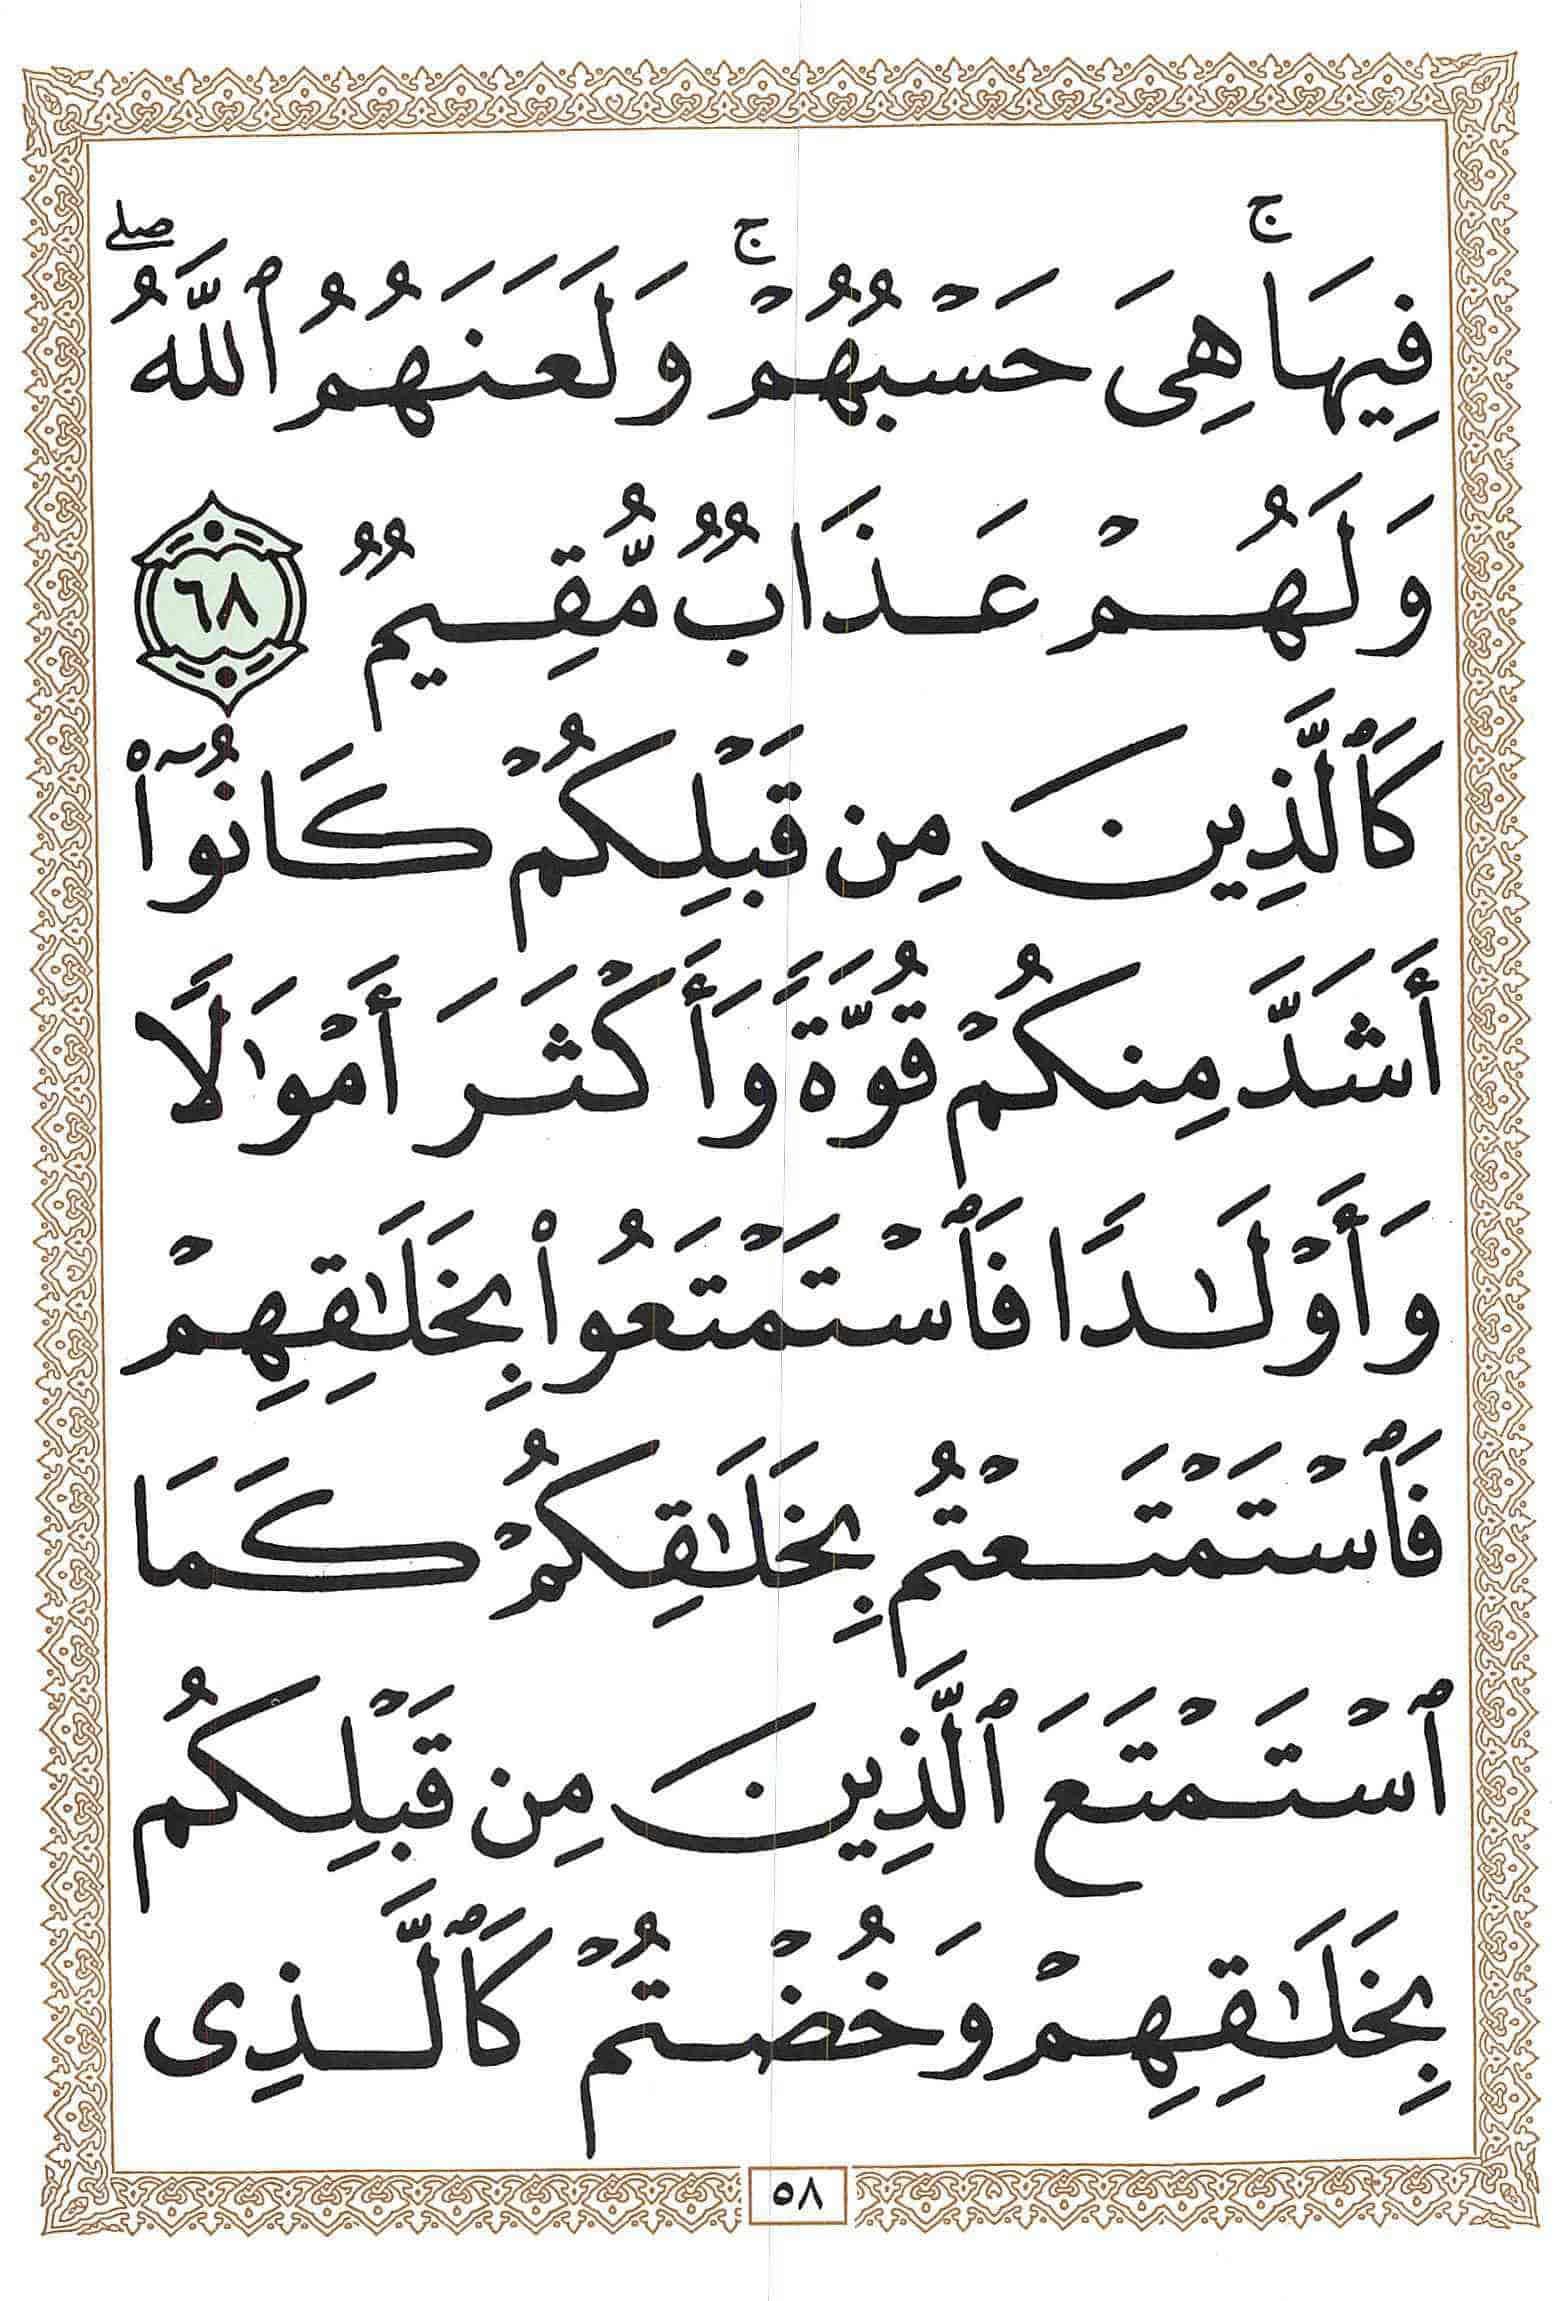 فِيهَاۚ هِىَ حَسْبُهُمْۚ وَلَعَنَهُمُ ٱللَّهُۖ
وَلَهُمْ عَذَابٌ مُّقِيمٌ ٦٨
كَٱلَّذِينَ مِن قَبْلِكُمْ كَانُوٓا۟
أَشَدَّ مِنكُمْ قُوَّةً وَأَكْثَرَ أَمْوَٰلًا
وَأَوْلَـٰدًا فَٱسْتَمْتَعُوا۟ بِخَلَـٰقِهِمْ
فَٱسْتَمْتَعْتُم بِخَلَـٰقِكُمْ كَمَا
ٱسْتَمْتَعَ ٱلَّذِينَ مِن قَبْلِكُم
بِخَلَـٰقِهِمْ وَخُضْتُمْ كَٱلَّذِى
٥٨